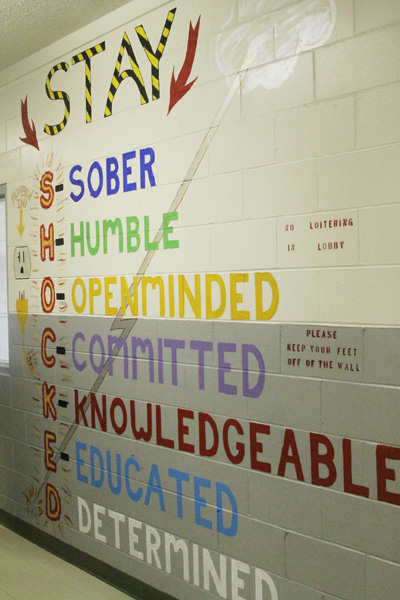 STAY
S-SOBER
H-HUMBLE
O-OPENMINDED
C-COMMITTED
K-KNOWLEDGEABLE
E-EDUCATED
D-DETERMINED
NO LOITERING
IN LOBBY
PLEASE
KEEP YOUR FEET
OFF OF THE WALL